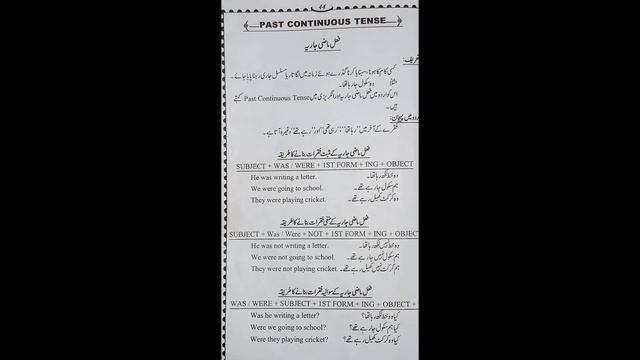 44
PAST CONTINUOUS TENSE
فعل ماضی جاریہ
تعریف:
کسی کام کا ہونا، سہنا یا کرنا گذرے ہوئے زمانہ میں لگاتار یا مسلسل جاری رہنا پایا جائے۔
مثلاً وہ سکول جا رہا تھا۔
اس کو اردو میں فعل ماضی جاریہ اور انگریزی میں Past Continuous Tense کہتے
ہیں۔
اردو میں پہچان:
فقرے کے آخر میں "رہا تھا"، "رہی تھی" اور "رہے تھے" وغیرہ آتا ہے۔
فعل ماضی جاریہ کے مثبت فقرات بنانے کا طریقہ
SUBJECT + WAS / WERE + 1ST FORM + ING + OBJECT
He was writing a letter. وہ خط لکھ رہا تھا۔
We were going to school. ہم سکول جا رہے تھے۔
They were playing cricket. وہ کرکٹ کھیل رہے تھے۔
فعل ماضی جاریہ کے منفی فقرات بنانے کا طریقہ
SUBJECT + Was / Were + NOT + 1ST FORM + ING + OBJECT
He was not writing a letter. وہ خط نہیں لکھ رہا تھا۔
We were not going to school. ہم سکول نہیں جا رہے تھے۔
They were not playing cricket. ہم کرکٹ نہیں کھیل رہے تھے۔
فعل ماضی جاریہ کے سوالیہ فقرات بنانے کا طریقہ
WAS / WERE + SUBJECT + 1ST FORM + ING + OBJECT +
Was he writing a letter? کیا وہ خط لکھ رہا تھا؟
Were we going to school? کیا ہم سکول جا رہے تھے؟
Were they playing cricket? کیا وہ کرکٹ کھیل رہے تھے؟